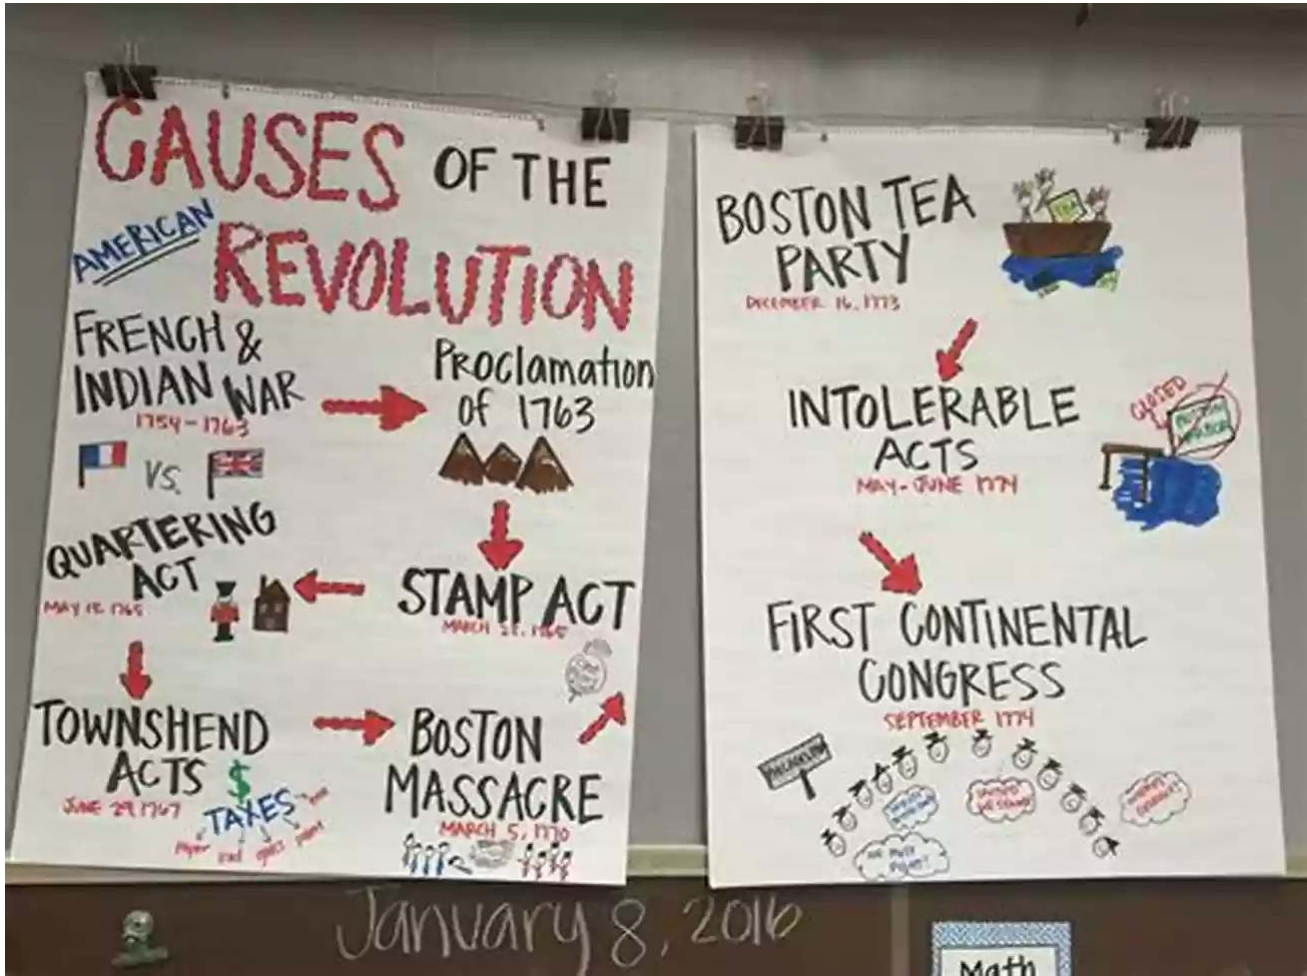 CAUSES OF THE
AMERICAN
REVOLUTION
FRENCH &
INDIAN WAR
1754-1763
VS.
Proclamation
of 1763
STAMP ACT
MARCH 22, 1765
QUARTERING
ACT
MAY 15, 1765
TOWNSHEND
ACTS
$
JUNE 29, 1767
TAXES
paper lead glass paint
BOSTON
MASSACRE
MARCH 5, 1770
BOSTON TEA
PARTY
TEA
DECEMBER 16, 1773
INTOLERABLE
ACTS
MAY-JUNE 1774
CLOSED
BOSTON
HARBOR
FIRST CONTINENTAL
CONGRESS
SEPTEMBER 1774
January 8, 2016
Math